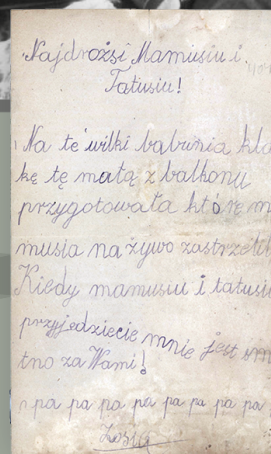 Najdrożsi Mamusiu i
Tatusiu!
Na te wilki babunia kla
kę tę małą z balkonu
przygotowała którą m
musia na żywo zastrzelił
Kiedy mamusiu i tatusiu
przyjedziecie mnie jest sm
tno za Wami!
pa pa pa pa pa pa pa pa
Zosia